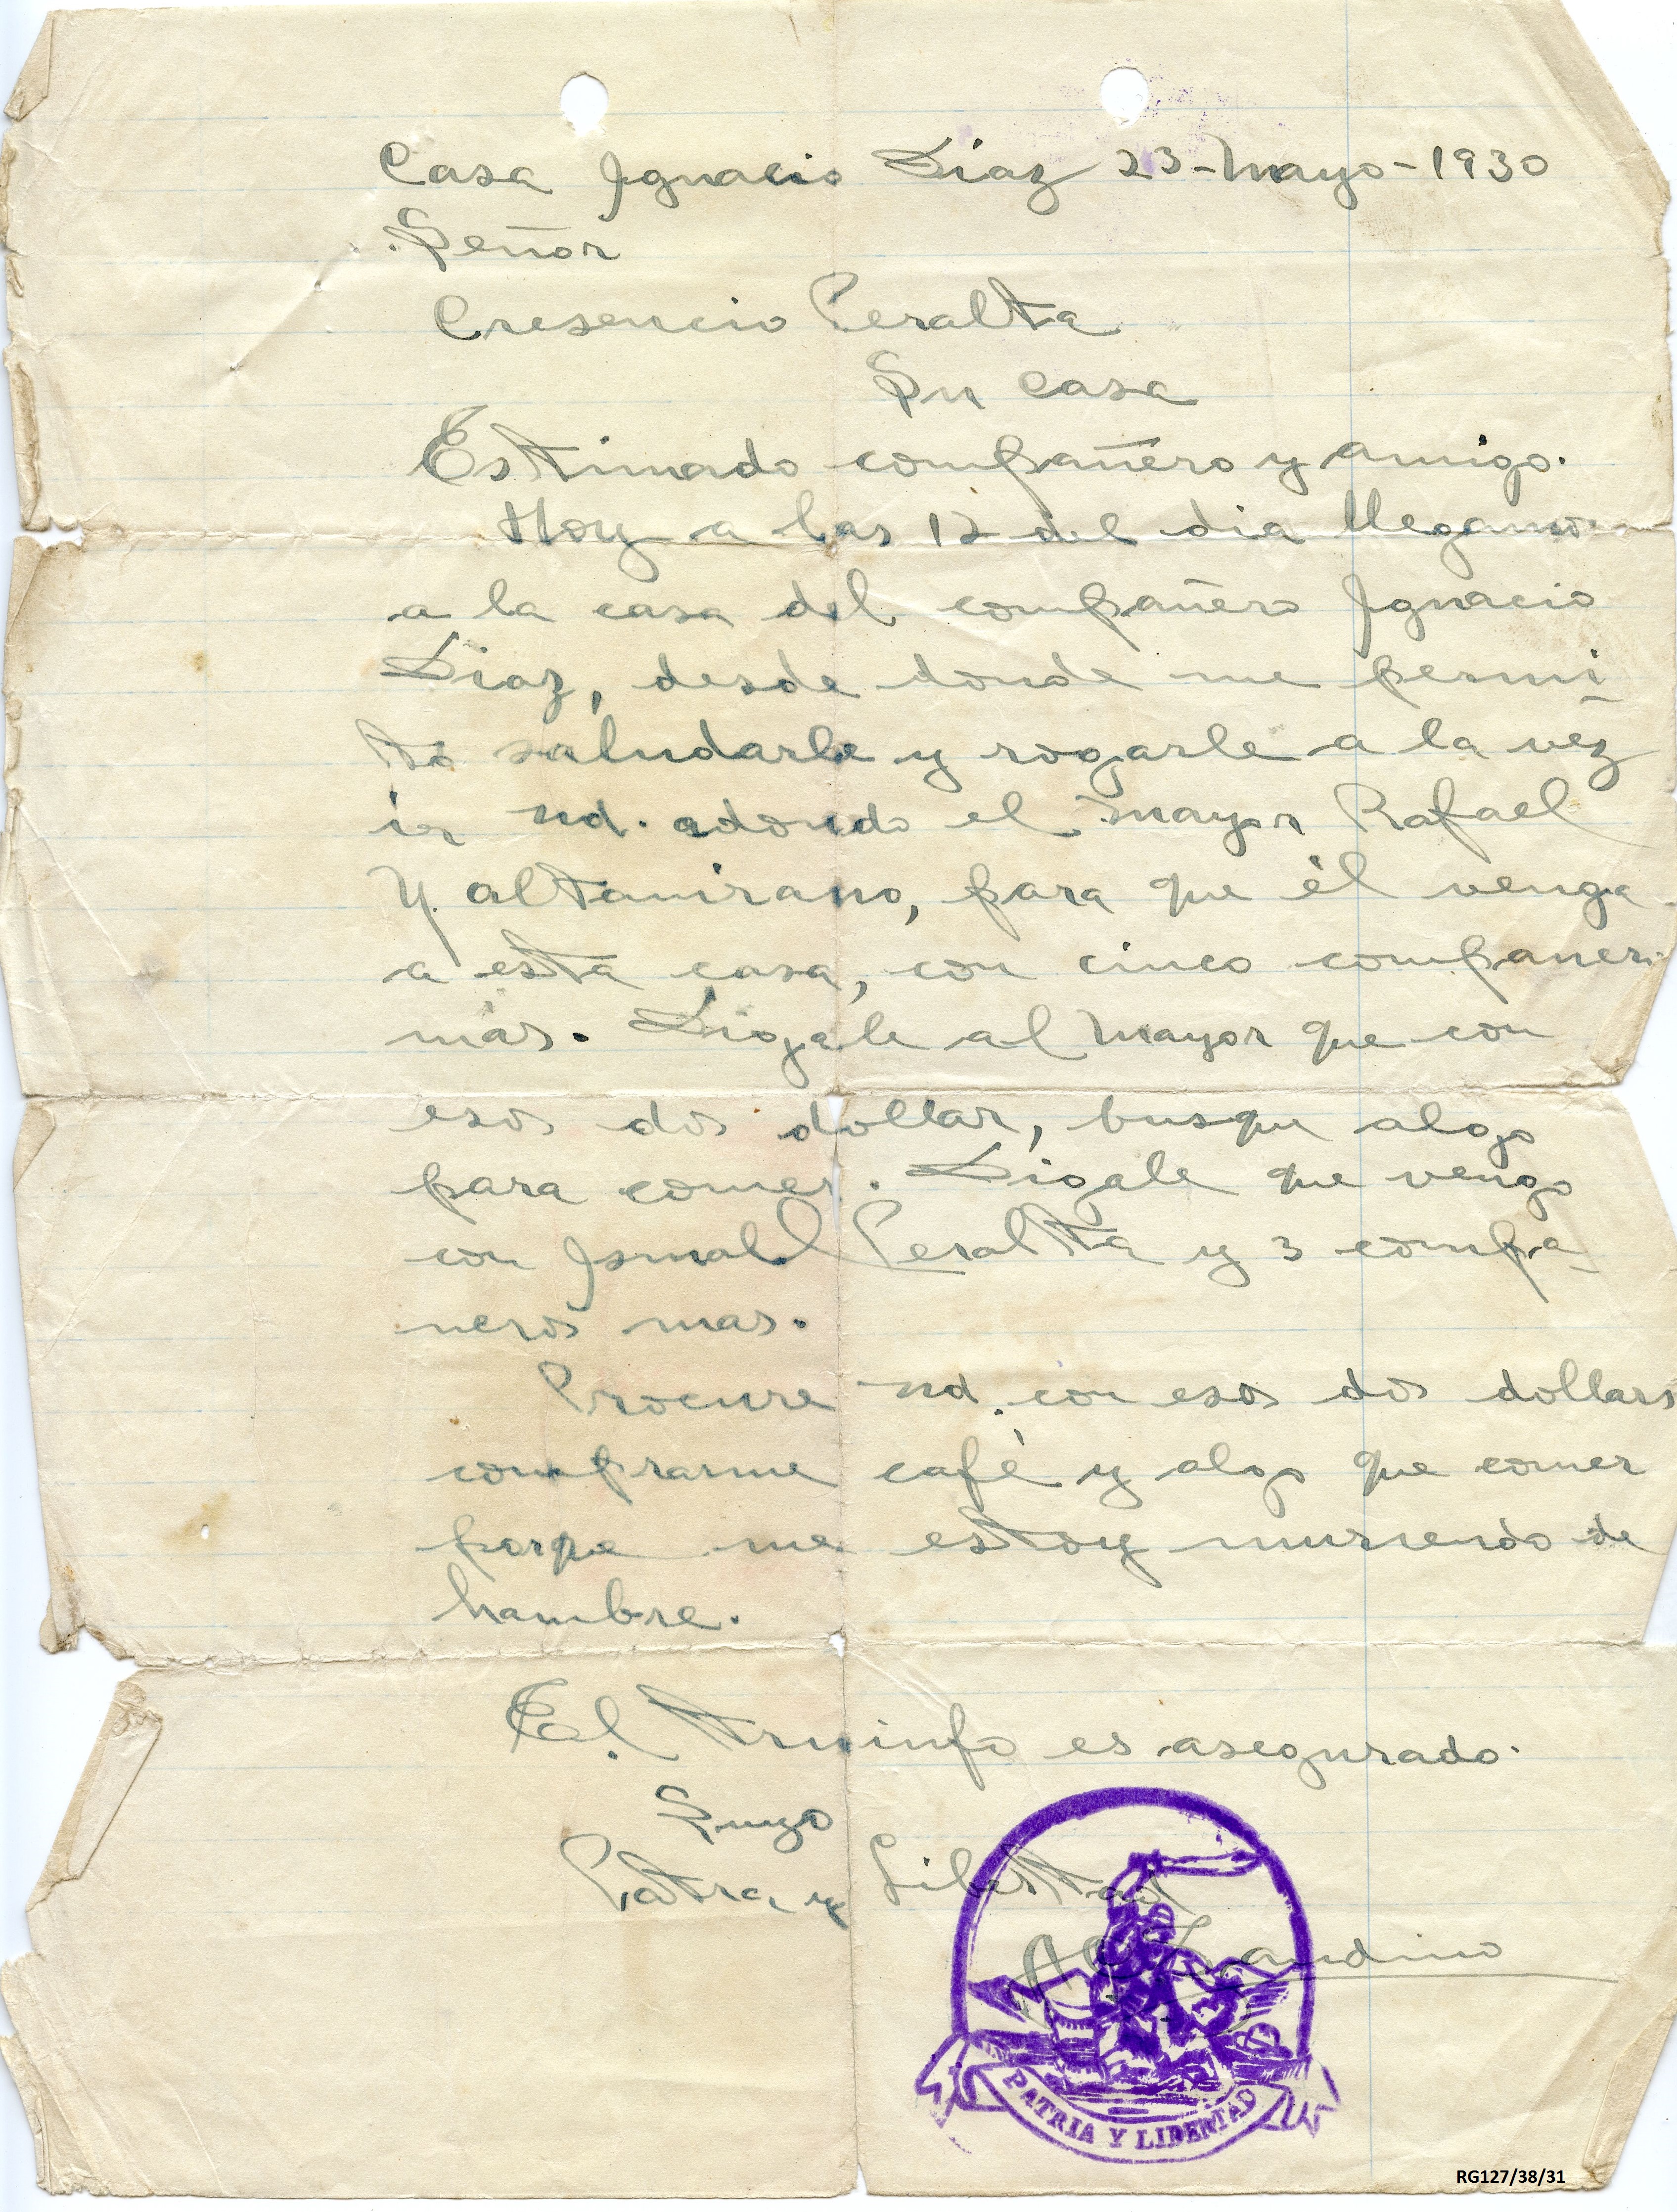 Casa Ignacio Díaz 23-Mayo-1930
Señor
Cresencio Peralta
Su casa
Estimado compañero y amigo.
Hoy a las 12 del dia llegamos
a la casa del compañero Ignacio
Diaz, desde donde me permi-
to saludarle y rogarle a la vez
ir ud. adonde el mayor Rafael
Y. Altamirano, para que él venga
a esta casa, con cinco companeros
más. Digale al Mayor que con
esos dos dollar, busque algo
para comer. Digale que vengo
con Ismael Peralta y 3 compa-
neros mas.
Procure ud. con esos dos dollars
comprarme café y algo que comer
porque me estoy muriendo de
hambre.
El triunfo es asegurado.
Suyo
Patria y Libertad
A C Sandino
PATRIA Y LIBERTAD
RG127/38/31